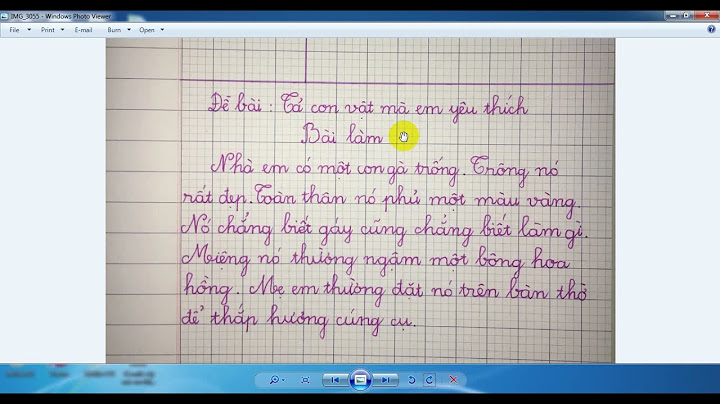 IMG_3055 - Windows Photo Viewer
File Print E-mail Burn Open
Đề bài : Tả con vật mà em yêu thích
Bài làm
Nhà em có một con gà trống. Trông nó
rất đẹp. Toàn thân nó phủ một màu vàng.
Nó chẳng biết gáy cũng chẳng biết làm gì.
Miệng nó thường ngậm một bông hoa
hồng. Mẹ em thường đặt nó trên bàn thờ
để thắp hương cúng cụ.